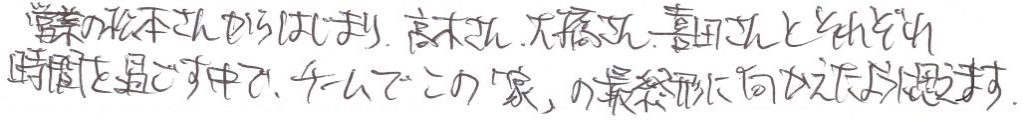 営業の松本さんからはじまり、高木さん、大橋さん、喜田さんとそれぞれ
時間を過ごす中で、チームでこの「家」の最終形に向かえたように思えます.